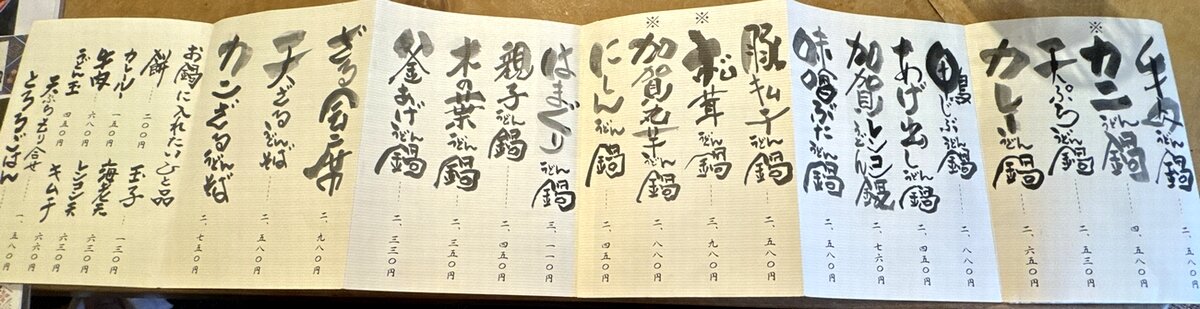 牛肉うどん鍋
※カニうどん鍋 三、二五〇円
天ぷらうどん鍋 二、八五〇円
カレーうどん鍋 二、六五〇円
鴨じぶうどん鍋 二、八八〇円
あげ出しうどん鍋 二、四五〇円
加賀レンコンうどん鍋 二、七六〇円
味噌ぶたうどん鍋 二、五八〇円
豚キムチうどん鍋 二、五八〇円
※松茸うどん鍋 三、九八〇円
※加賀芹うどん鍋 二、八八〇円
にしんうどん鍋 二、八〇〇円
はまぐりうどん鍋 三、一一〇円
親子うどん鍋 二、四五〇円
木の葉うどん鍋 二、三五〇円
釜あげうどん鍋 二、三三〇円
ざる会席 二、九八〇円
天ざるうどんそば 二、五八〇円
カニざるうどんそば 二、七五〇円
お鍋に入れたいひと品
餅 二〇〇円
玉子 一三〇円
カレールー 一五〇円
海老天 六三〇円
牛肉 六八〇円
レンコン天 六三〇円
うどん玉 四五〇円
キムチ 六三〇円
天ぷら盛り合せ 一、六六〇円
とろろごはん 五八〇円